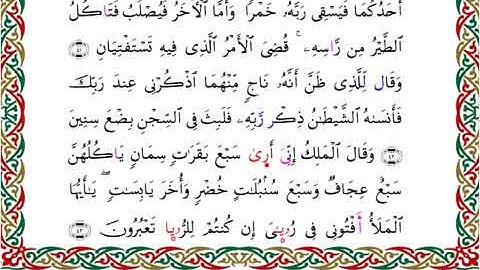 أَحَدُكُمَا فَيَسْقِى رَبَّهُۥ خَمْرًا ۖ وَأَمَّا ٱلْأَخَرُ فَيُصْلَبُ فَتَاكُلُ
ٱلطَّيْرُ مِن رَّاسِهِۦ ۚ قُضِىَ ٱلْأَمْرُ ٱلَّذِى فِيهِ تَسْتَفْتِيَانِ ٤١
وَقَال لِّلَّذِى ظَنَّ أَنَّهُۥ نَاجٍ مِّنْهُمَا ٱذْكُرْنِى عِندَ رَبِّكَ
فَأَنسَىٰهُ ٱلشَّيْطَٰنُ ذِكْر رَّبِّهِۦ فَلَبِثَ فِى ٱلسِّجْنِ بِضْعَ سِنِينَ
٤٢ وَقَالَ ٱلْمَلِكُ إِنِّىَ أَرِىٰ سَبْعَ بَقَرَٰتٍ سِمَانٍ يَاكُلُهُنَّ
سَبْعٌ عِجَافٌ وَسَبْعَ سُنۢبُلَٰتٍ خُضْرٍ وَأُخَرَ يَابِسَٰتٍ ۖ يَٰٓأَيُّهَا
ٱلْمَلَأُ أَفْتُونِى فِى رُويَٰىَ إِن كُنتُمْ لِلرُّويِا تَعْبُرُونَ ٤٣